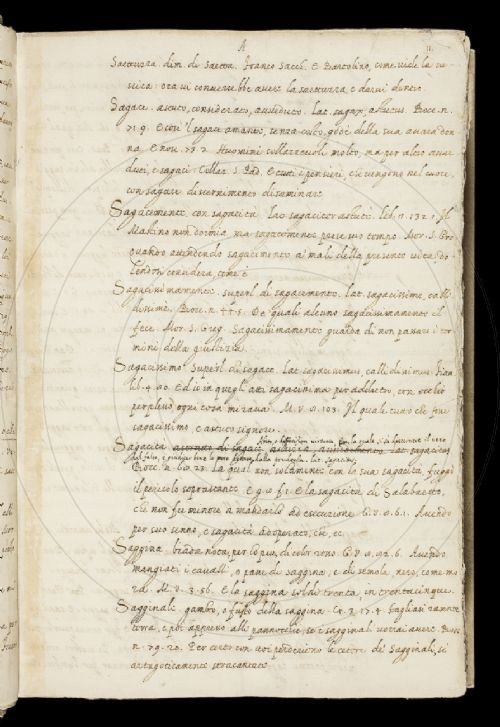 A 11.
Saettuzza. dim. di Saetta. Franco Sacch. E Bartolino, come vide la ve-
scica: ora si converrebbe avere la saettuzza e darvi dentro.
Sagace. astuto, considerato, avveduto. lat. sagax, astutus. Bocc. n.
71. 9. E così il sagace amante, senza costo, godé della sua avara don-
na. E nov. Huomini sollazzevoli molto, ma per altro avve-
duti, e sagaci. Collaz. S. Pad. E tutti i pensieri, che vengono nel cuore,
con sagace discernimento disaminare.
Sagacemente. con sagacità. lat. sagaciter, astute. lib. Il
Makino non dormia, ma sagacemente prese suo tempo. Mor. S. Greg.
quando avendosi sagacemente a mali della presente vita
considera, come è
Sagacissimamente. superl. di sagacemente. lat. sagacissime, calli-
dissime. Bocc. n. De quali alcuno sagacissimamente il
fece. Mor. S. Greg. Sagacissimamente guarda di non passare i ter-
mini della giustizia.
Sagacissimo. Superl. di sagace. lat. sagacissimus, callidissimus. Fiam.
lib. 4. Ed io in quegli atti sagacissima per addietro, con occhio
perplesso ogni cosa mirava. M. V. 9. 103. Il quale
sagacissimo e astuto signore.
Sagacità. lat. sagacitas
Bocc. n. La qual non solamente con la sua sagacità, fuggì
il pericolo soprastante. E la sagacità di Salabaetto,
che non fu minore a mandarlo ad esecuzione. G. V. 9. 61. Avendo
per suo senno, e sagacità adoperato, che, ec.
Saggina. biada nota, per lo più, di color nero. G. V. Avendo
mangiati i cavalli, e pane di saggina, e di semola, nero, come mo-
ra. M. V. 3. 56. E la saggina soldi trenta, in trentacinque.
Sagginale. gambo, o fusto della saggina. Cr. 3. 17. 4. Tagliasi rasente
terra, e poi appresso alle pannocchie, se i sagginali vorrai avere. Bocc.
n. 79. 20. Per certo con voi perderieno le cetere de' Sagginali, sì
artagoticamente stracantate.